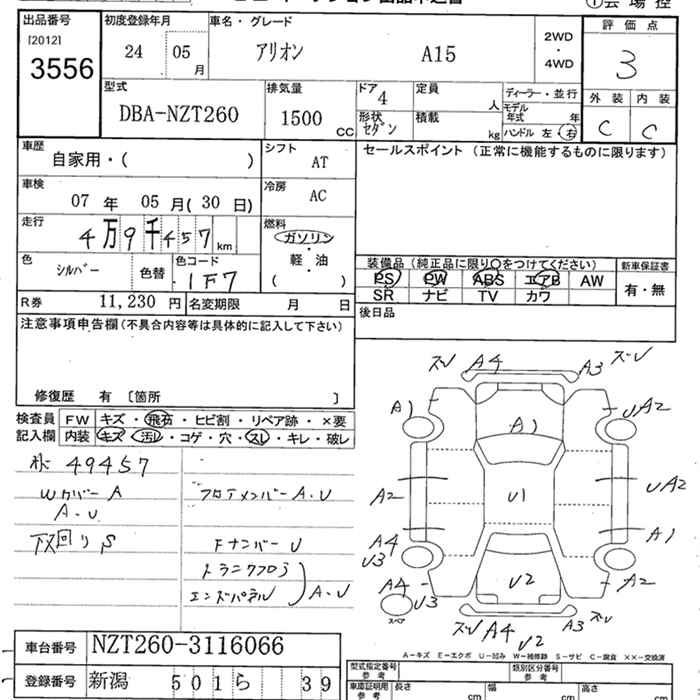 出品番号 初度登録年月 車名・グレード 評価点
[2012] 3556 24 05月 アリオン A15 2WD・4WD 3
型式 排気量 ドア 4 定員 人 ディーラー・並行 外装 内装
DBA-NZT260 1500 CC 形状 セダン 積載 kg モデル年式 年 C C
ハンドル 左・右
車歴 自家用・( ) シフト AT セールスポイント (正常に機能するものに限ります)
車検 07年 05月(30日) 冷房 AC
走行 4万9千457km 燃料 ガソリン・軽・油 ( )
色 シルバー 色替 色コード 1F7
装備品 (純正品に限り○をつけてください) 新車保証書
PS PW ABS エアB AW 有・無
SR ナビ TV カワ
R券 11,230円 名変期限 月 日
後日品
注意事項申告欄(不具合内容等は具体的に記入して下さい)
修復歴 有 〔箇所 〕
検査員記入欄 FW キズ・飛石・ヒビ割・リペア跡・×要
内装 キズ・汚レ・コゲ・穴・スレ・キレ・破レ
49457
Wカバー A
A.U
下回り S
フロアメンバー A.U
Fナンバー U
トランクフロア
エンドパネル A.U
ズレ A4 A3 ズレ
A1 A1 UA2
A2 U1 UA2
A4 U3 A1
A4 U3 U2 A2
スペア
ズレ A4 U2 A3 ズレ
A-キズ E-エクボ U-凹み W-補修跡 S-サビ C-腐食 XX-交換済
車台番号 NZT260-3116066
登録番号 新潟 501 ら 39
型式指定番号 参考 類別区分番号 参考
車庫証明用 参考 長さ cm 幅 cm 高さ cm